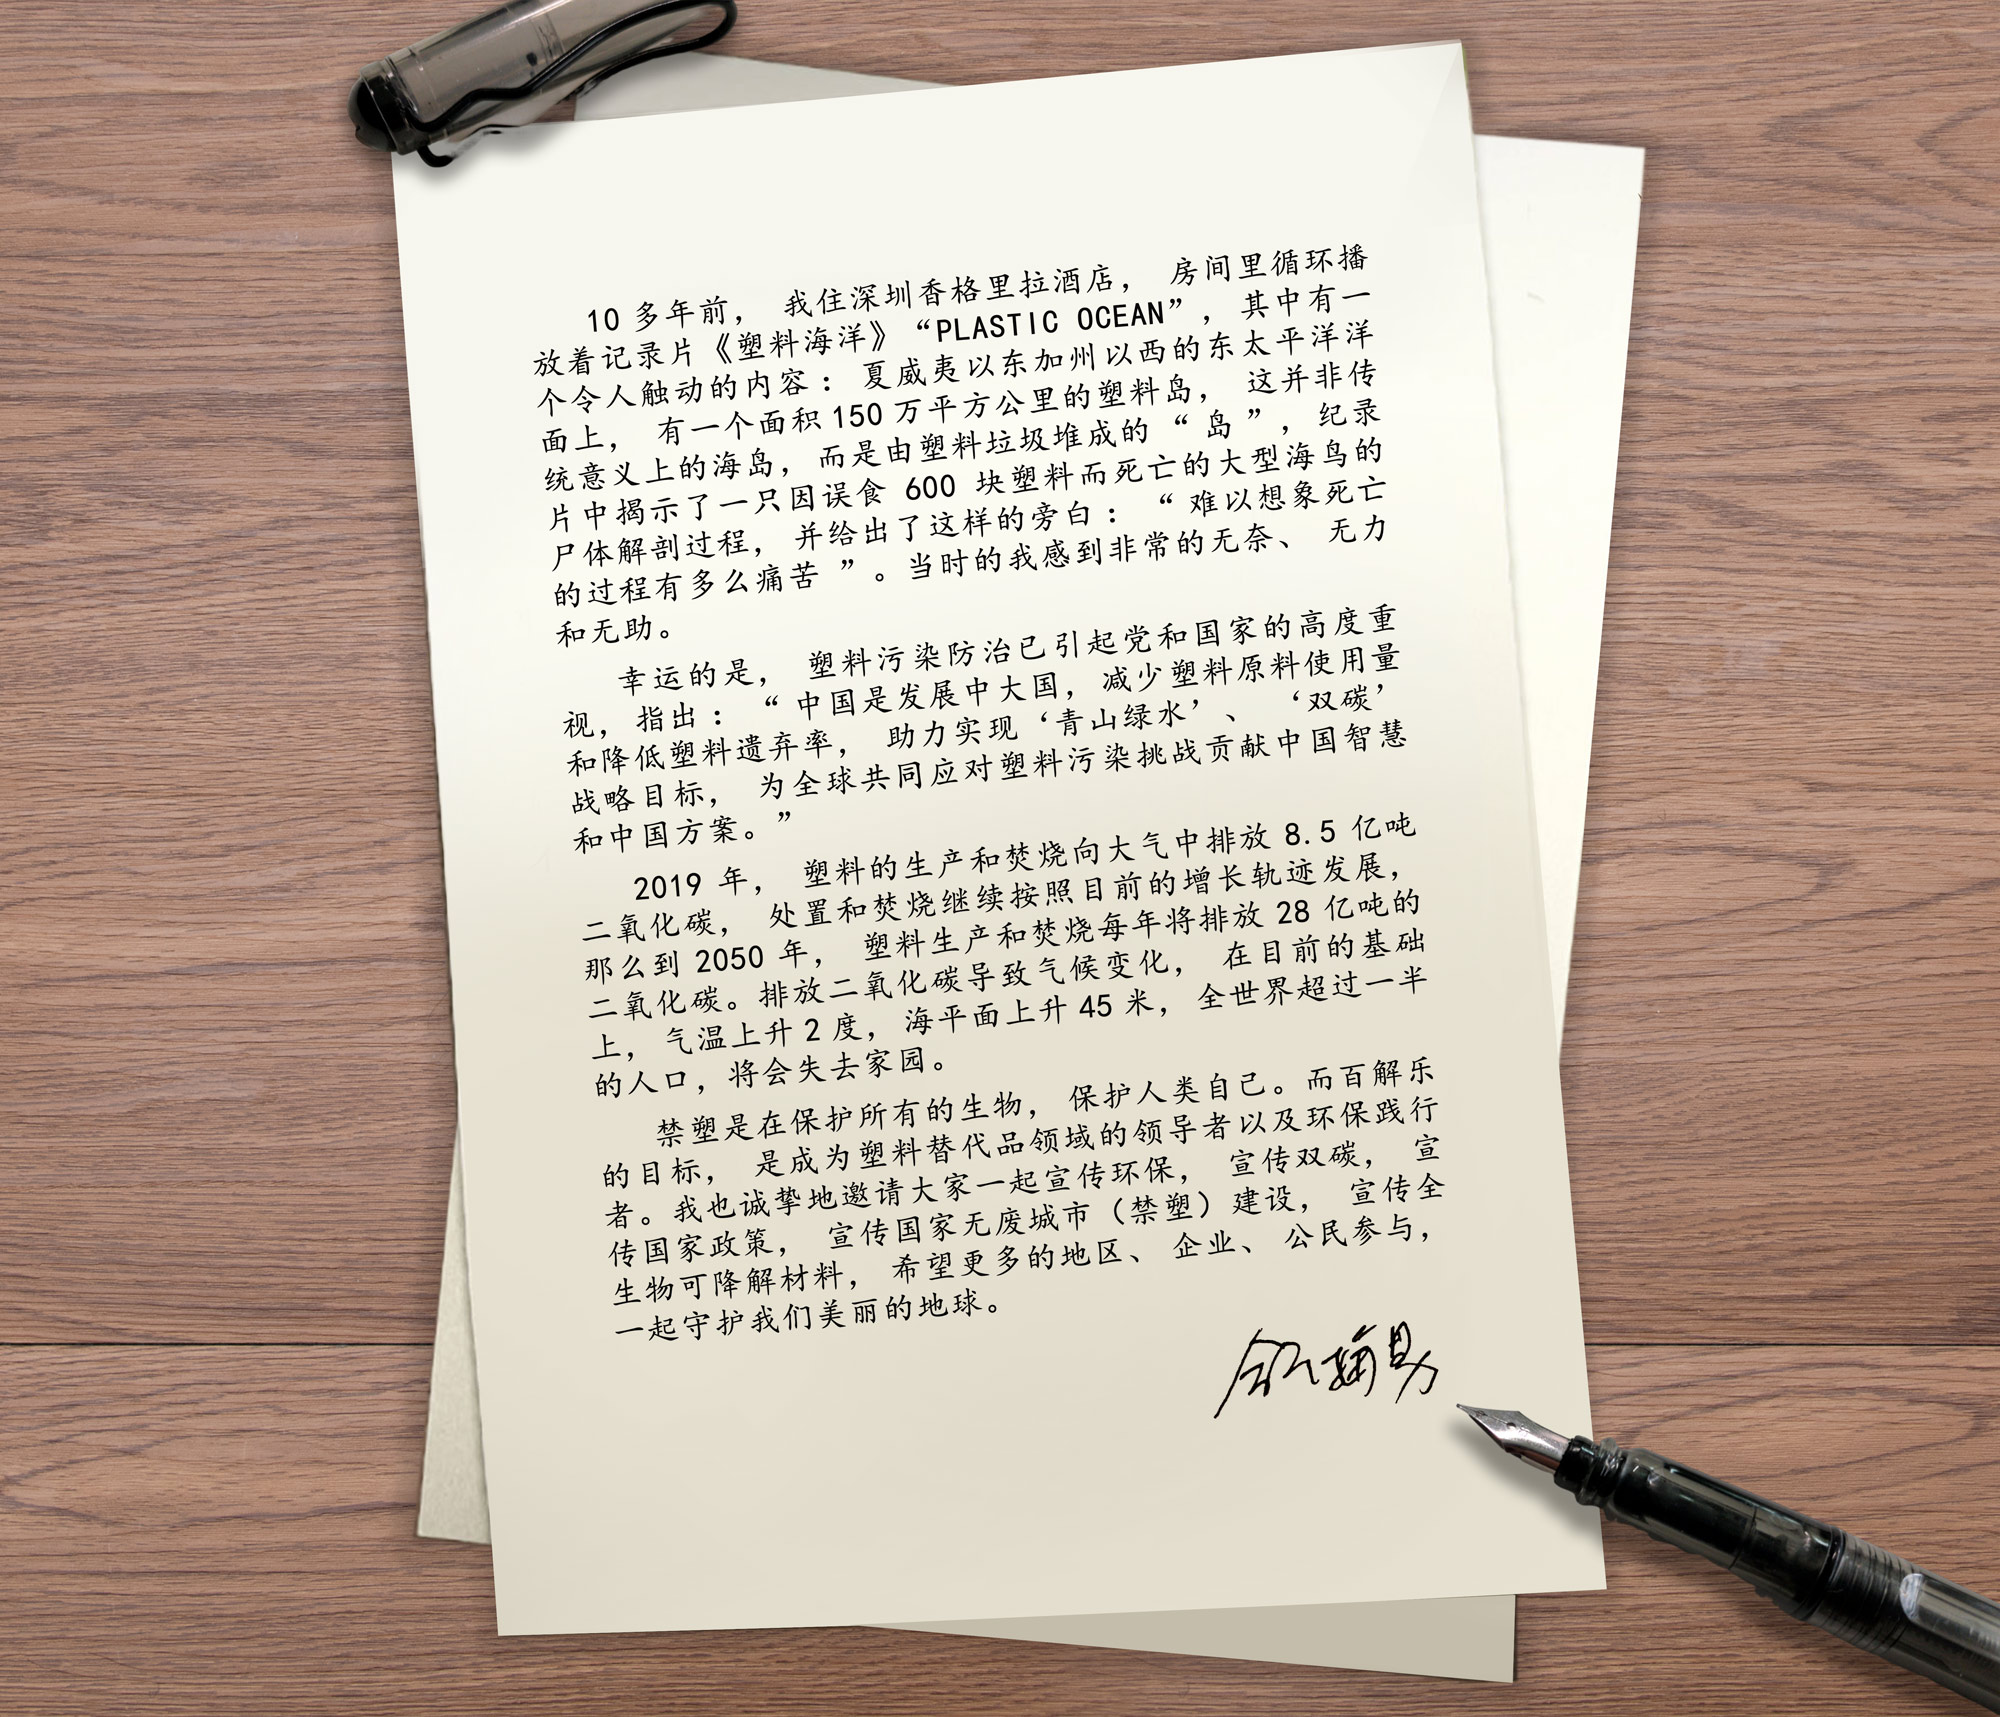 10多年前， 我住深圳香格里拉酒店， 房间里循环播
放着记录片《塑料海洋》“PLASTIC OCEAN”，其中有一
个令人触动的内容： 夏威夷以东加州以西的东太平洋洋
面上， 有一个面积150万平方公里的塑料岛， 这并非传
统意义上的海岛，而是由塑料垃圾堆成的“岛”，纪录
片中揭示了一只因误食 600 块塑料而死亡的大型海鸟的
尸体解剖过程，并给出了这样的旁白： “难以想象死亡
的过程有多么痛苦”。当时的我感到非常的无奈、 无力
和无助。
幸运的是， 塑料污染防治已引起党和国家的高度重
视，指出： “中国是发展中大国，减少塑料原料使用量
和降低塑料遗弃率， 助力实现‘青山绿水’、 ‘双碳’
战略目标， 为全球共同应对塑料污染挑战贡献中国智慧
和中国方案。”
2019 年， 塑料的生产和焚烧向大气中排放 8.5 亿吨
二氧化碳， 处置和焚烧继续按照目前的增长轨迹发展，
那么到 2050 年， 塑料生产和焚烧每年将排放 28 亿吨的
二氧化碳。排放二氧化碳导致气候变化， 在目前的基础
上， 气温上升2度，海平面上升45米，全世界超过一半
的人口，将会失去家园。
禁塑是在保护所有的生物， 保护人类自己。而百解乐
的目标， 是成为塑料替代品领域的领导者以及环保践行
者。我也诚挚地邀请大家一起宣传环保， 宣传双碳， 宣
传国家政策， 宣传国家无废城市（禁塑）建设， 宣传全
生物可降解材料， 希望更多的地区、 企业、 公民参与，
一起守护我们美丽的地球。